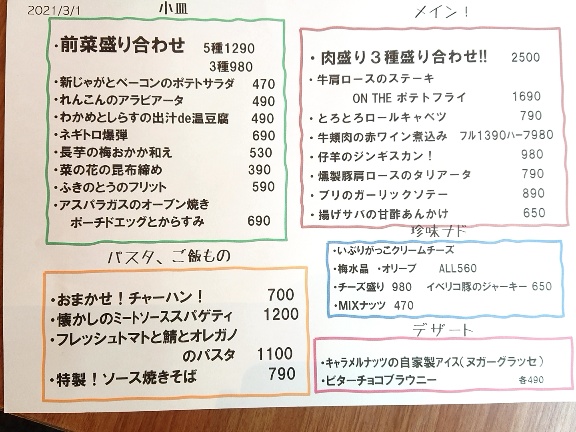 2021/3/1
小皿
・前菜盛り合わせ 5種1290
3種980
・新じゃがとベーコンのポテトサラダ 470
・れんこんのアラビアータ 490
・わかめとしらすの出汁de温豆腐 490
・ネギトロ爆弾 690
・長芋の梅おかか和え 530
・菜の花の昆布締め 390
・ふきのとうのフリット 590
・アスパラガスのオーブン焼き
ポーチドエッグとからすみ 690
パスタ、ご飯もの
・おまかせ！チャーハン！ 700
・懐かしのミートソーススパゲティ 1200
・フレッシュトマトと鯖とオレガノ
のパスタ 1100
・特製！ソース焼きそば 790
メイン！
・肉盛り３種盛り合わせ!! 2500
・牛肩ロースのステーキ
ON THE ポテトフライ 1690
・とろとろロールキャベツ 790
・牛頬肉の赤ワイン煮込み フル1390ハーフ980
・仔羊のジンギスカン！ 980
・燻製豚肩ロースのタリアータ 790
・ブリのガーリックソテー 890
・揚げサバの甘酢あんかけ 650
珍味ナド
・いぶりがっこクリームチーズ
・梅水晶 ・オリーブ ALL560
・チーズ盛り 980 イベリコ豚のジャーキー 650
・MIXナッツ 470
デザート
・キャラメルナッツの自家製アイス(ヌガーグラッセ)
・ビターチョコブラウニー 各490